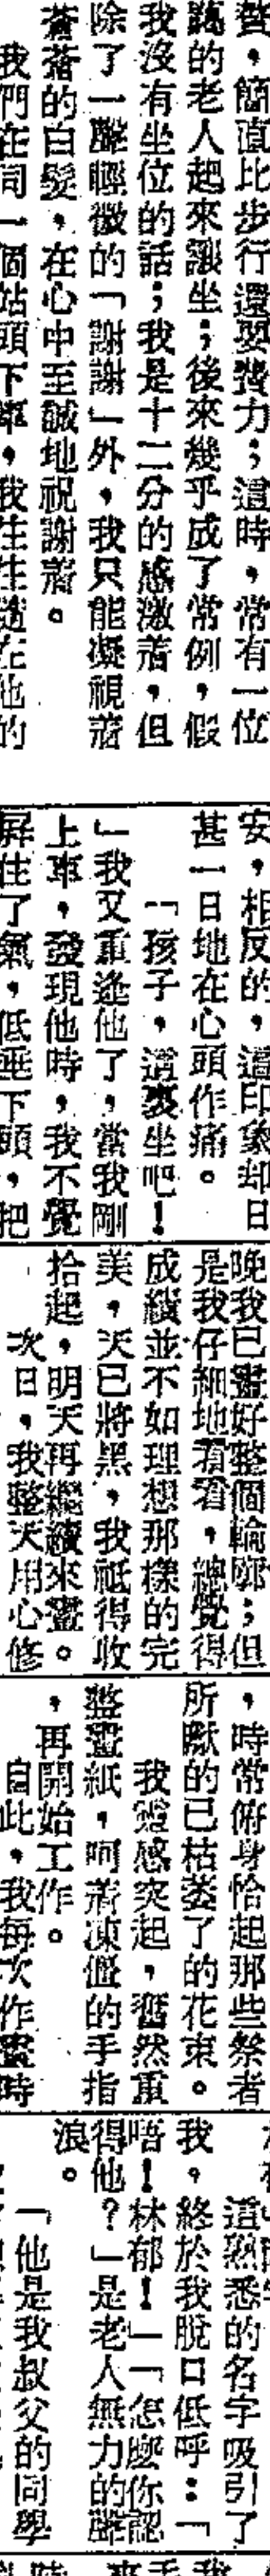 贅，簡直比步行還要費力；這時，常有一位
的老人起來讓坐；後來幾乎成了常例，假
我沒有坐位的話；我是十二分的感激着，但
除了一聲輕微的「謝謝」外，我只能凝視着
蒼蒼的白髮，在心中至誠地祝謝着。
我們在同一個站頭下車，我往往隨在他的
安，相反的，這印象却日
甚一日地在心頭作痛。
「孩子，這裏坐吧！
」我又重逢他了，當我剛
上車，發現他時，我不覺
屏住了氣，低垂下頭，把
晚我已畫好整個輪廓；但
是我仔細地看看，總覺得
成績並不如理想那樣的完
美，天已將黑，我祇得收
拾起，明天再繼續來畫。
次日，我整天用心修
，時常俯身恰起那些祭者
所獻的已枯萎了的花束。
我靈感突起，舊然重
整畫紙，呵着凍僵的手指
，再開始工作。
自此，我每次作畫時
這熟悉的名字吸引了
我，終於我脫口低呼：「
唔！林郁！」「怎麼你認
得他？」是老人無力的聲
浪。
「他是我叔父的同學